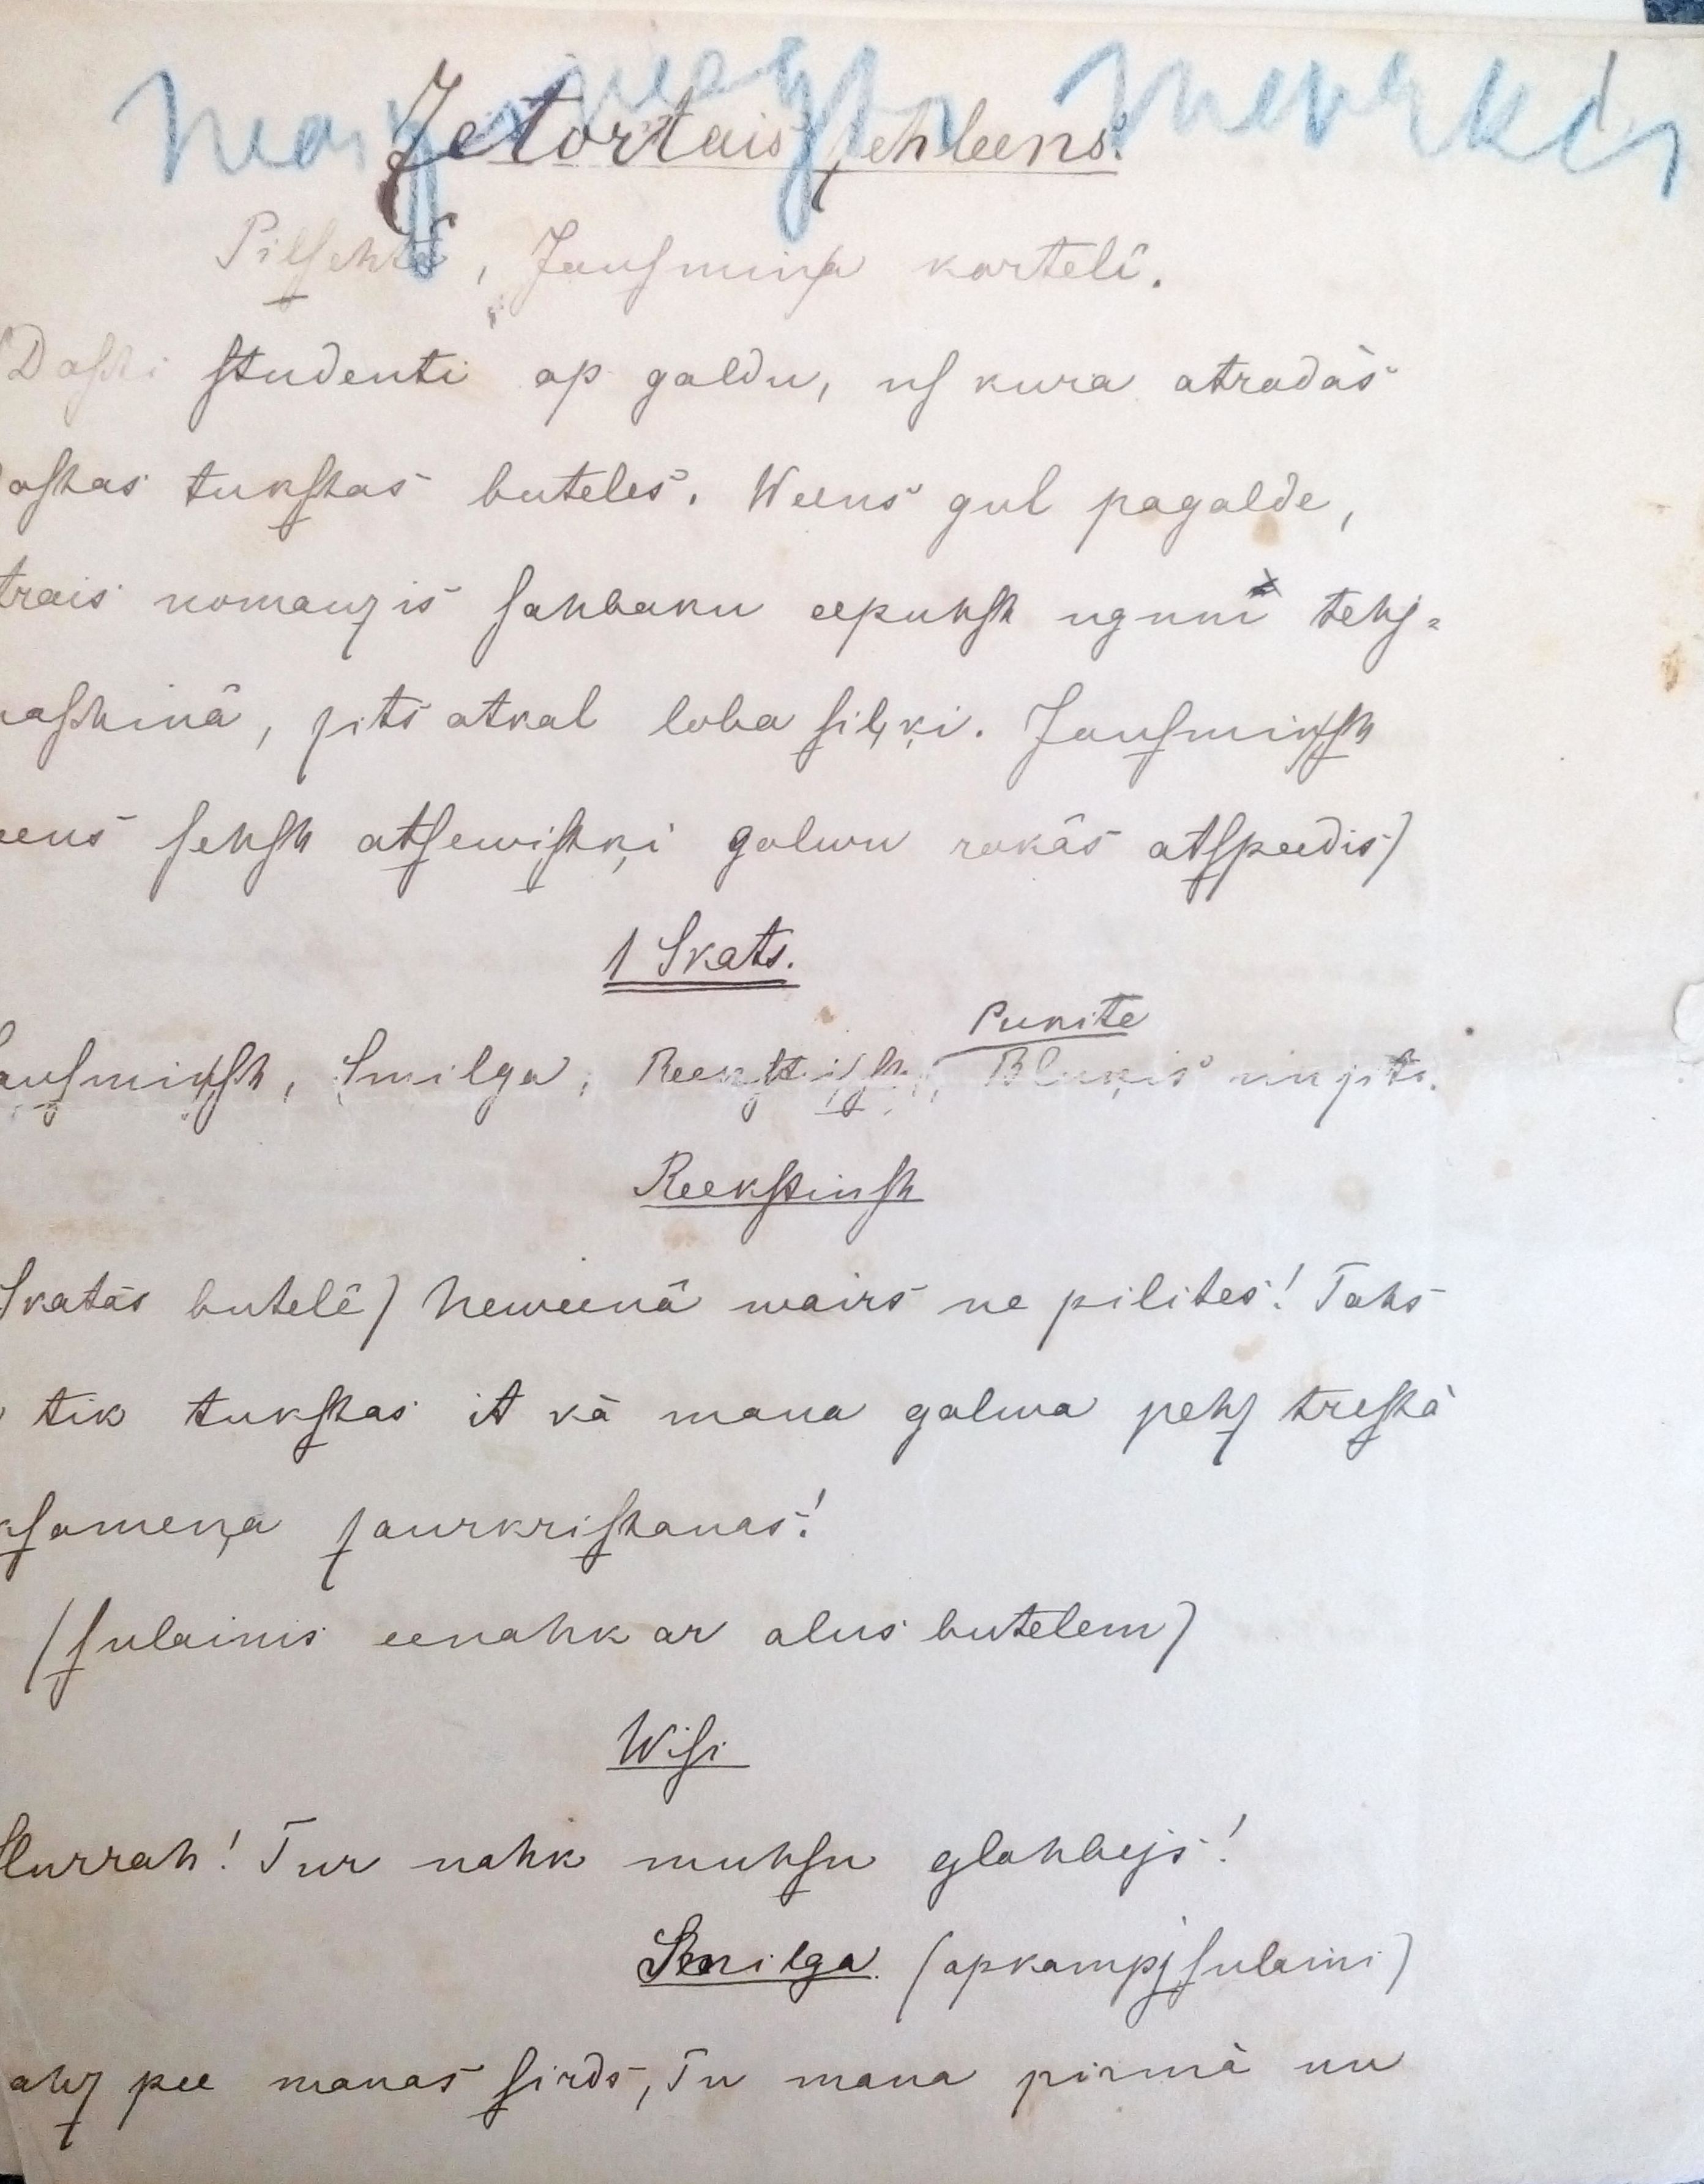 Zetortais zehleens.
Pilſehtā, Jauſmiņa kortelī.
(Daſchi ſtudenti ap galdu, uſ kura atradās
daſchas tukſchas buteles. Weens guļ pagalde,
otrais nomauzis ſahbaku eepuhſch uguni tehj=
maſchinā, zits atkal loba ſiļķi. Jauſmiņſch
weens ſehſch atſewiſchķi galwu rokās atſpeedis)
1 Skats.
Pukite
Jauſmiņſch, Smilga, Reekſtiņſch, Blukis un zits.
Reekſtinſch
Skatās butelē) Neweenā wairs ne pilites! Tahs
tik tukſchas it kā mana galwa pehz treſchā
ekſameņa zaurkriſchanas!
(ſulainis eenahk ar alus butelem)
Wiſi
Hurrah! Tur nahk muhſu glahbejs!
Smilga (apkampj ſulaini)
Nahz pee manas ſirds, Tu mana pirmā un